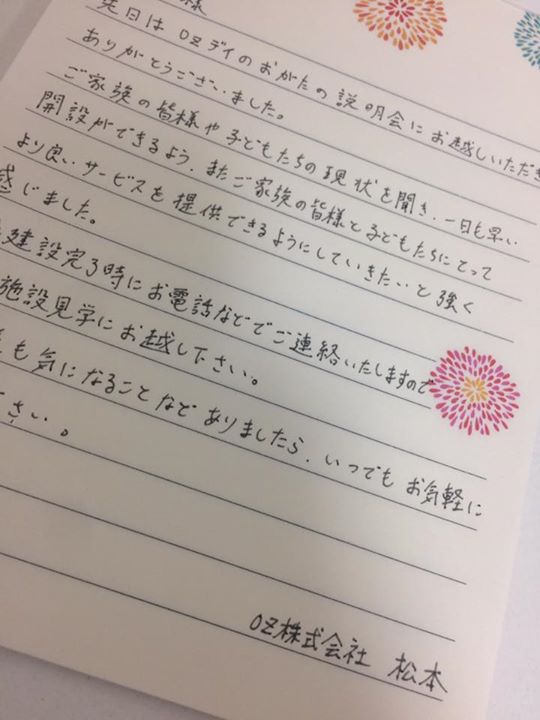 様
先日は OZデイのおがたの説明会にお越しいただき
ありがとうございました。
ご家族の皆様や子どもたちの現状を聞き、一日も早い
開設ができるよう、またご家族の皆様と子どもたちにとって
より良いサービスを提供できるようにしていきたいと強く
感じました。
建設完了時にお電話などでご連絡いたしますので
施設見学にお越し下さい。
も気になることなどありましたら、いつでもお気軽に
さい。
OZ株式会社 松本